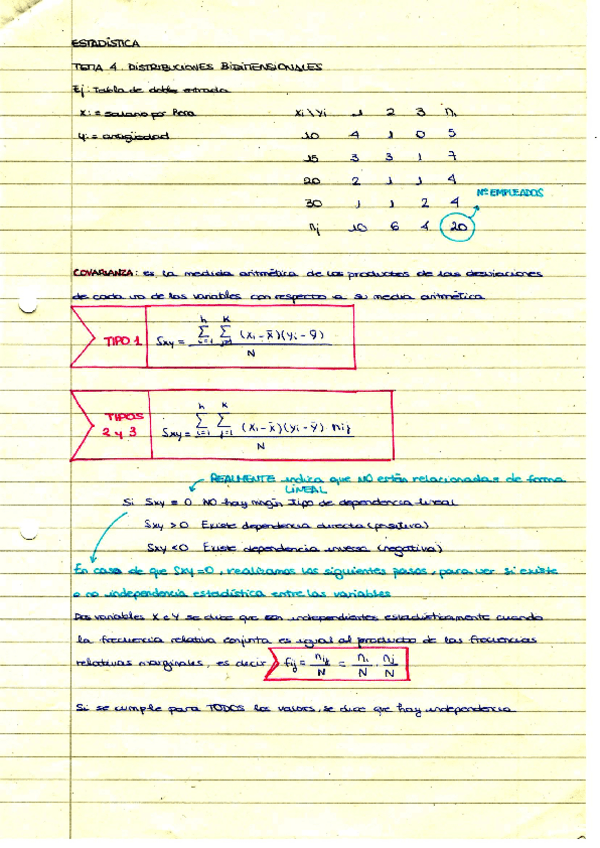 ESTADÍSTICA
TEMA 4. DISTRIBUCIONES BIDIMENSIONALES
Ej: Tabla de doble entrada
xi = salario por hora
yi = antigüedad
xi\yi 1 2 3 ni
10 4 1 0 5
15 3 3 1 7
20 2 1 1 4
30 1 1 2 4
nj 10 6 4 20
Nº EMPLEADOS
COVARIANZA: es la medida aritmética de los productos de las desviaciones
de cada una de las variables con respecto a su media aritmética
TIPO 1 Sxy = h∑i=1 k∑j=1 (xi - x̄)(yi - ȳ) / N
TIPOS 2 y 3 Sxy = h∑i=1 k∑j=1 (xi - x̄)(yi - ȳ) · nij / N
REALMENTE indica que NO están relacionadas de forma
LINEAL
Si Sxy = 0 NO hay ningún tipo de dependencia lineal
Sxy > 0 Existe dependencia directa (positiva)
Sxy < 0 Existe dependencia inversa (negativa)
En caso de que Sxy = 0, realizamos los siguientes pasos, para ver si existe
o no independencia estadística entre las variables
Dos variables X e Y se dice que son independientes estadísticamente cuando
la frecuencia relativa conjunta es igual al producto de las frecuencias
relativas marginales, es decir fij = nij/N = ni/N · nj/N
Si se cumple para TODOS los valores, se dice que hay independencia